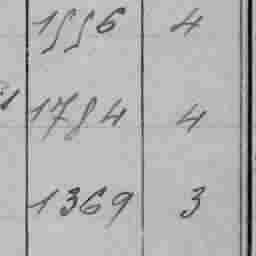 1556 4
1754 4
1369 3